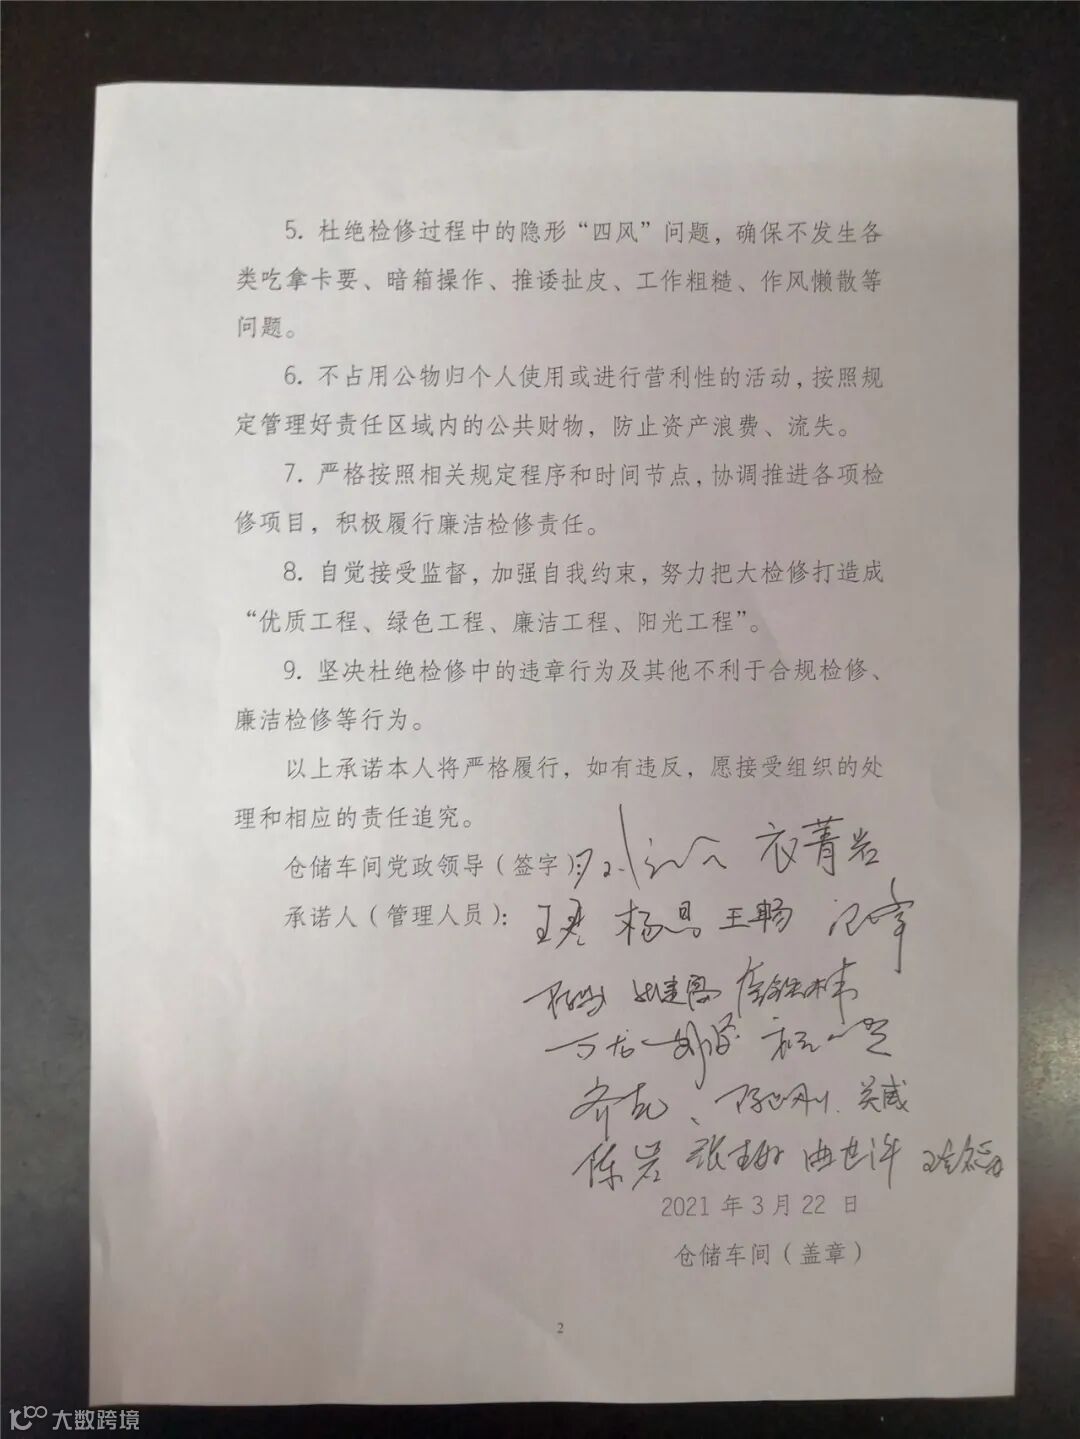 5. 杜绝检修过程中的隐形“四风”问题，确保不发生各
类吃拿卡要、暗箱操作、推诿扯皮、工作粗糙、作风懒散等
问题。
6. 不占用公物归个人使用或进行营利性的活动，按照规
定管理好责任区域内的公共财物，防止资产浪费、流失。
7. 严格按照相关规定程序和时间节点，协调推进各项检
修项目，积极履行廉洁检修责任。
8. 自觉接受监督，加强自我约束，努力把大检修打造成
“优质工程、绿色工程、廉洁工程、阳光工程”。
9. 坚决杜绝检修中的违章行为及其他不利于合规检修、
廉洁检修等行为。
以上承诺本人将严格履行，如有违反，愿接受组织的处
理和相应的责任追究。
仓储车间党政领导（签字）： 衣菁岩
承诺人（管理人员）： 王君 杨昌 王畅
齐克、 关威
陈岩
2021 年 3 月 22 日
仓储车间（盖章）
2
大数跨境